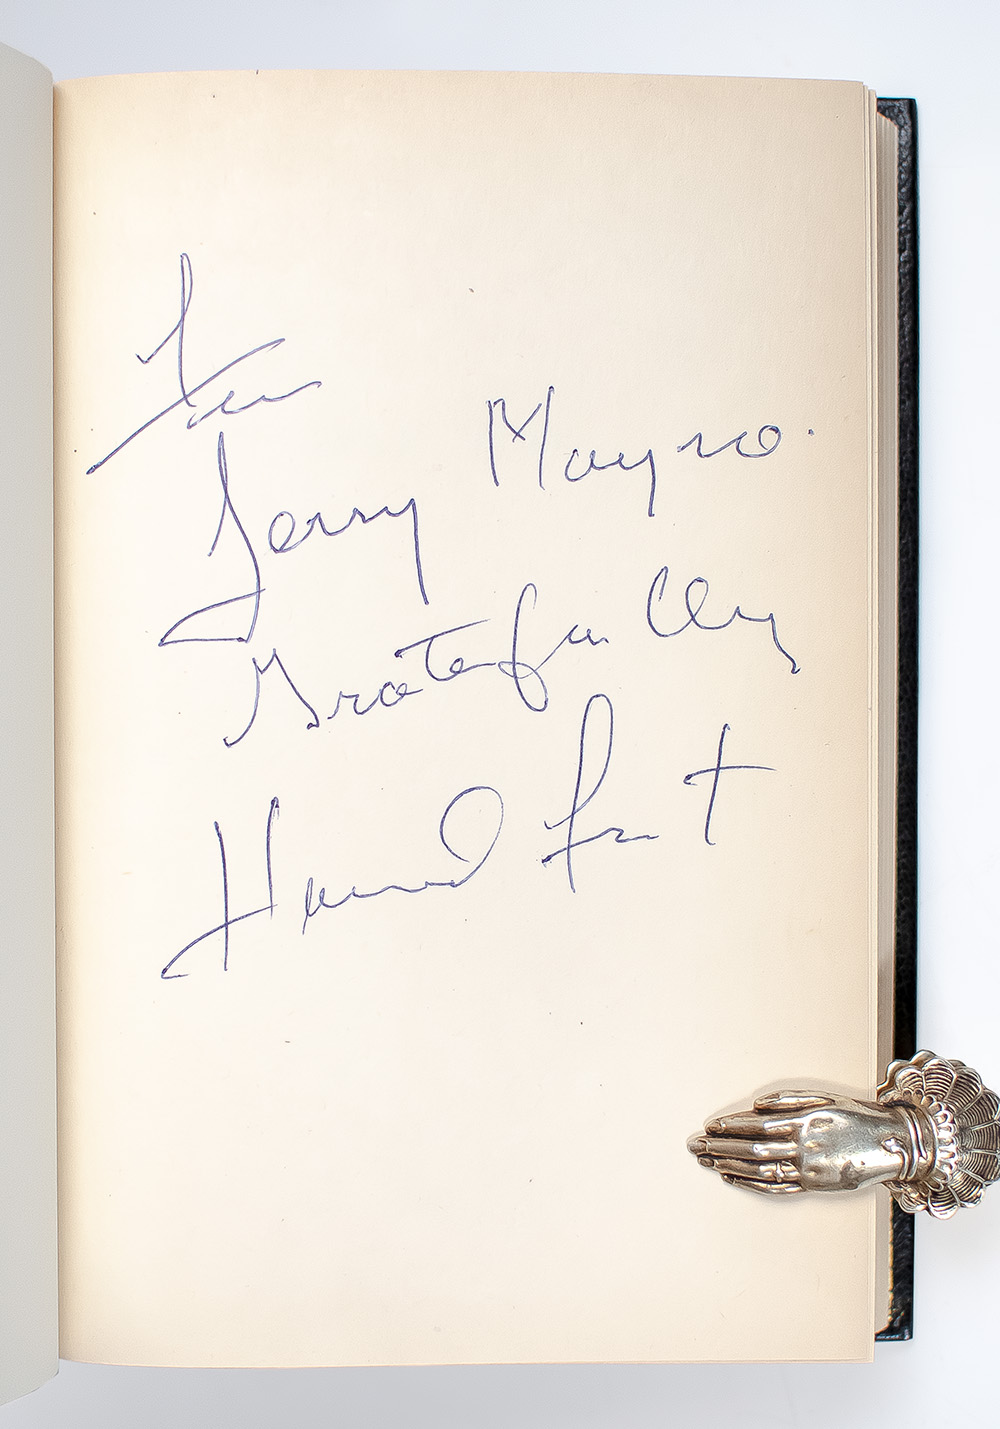 For
Jerry Mayro.
Gratefully
Howard Fast